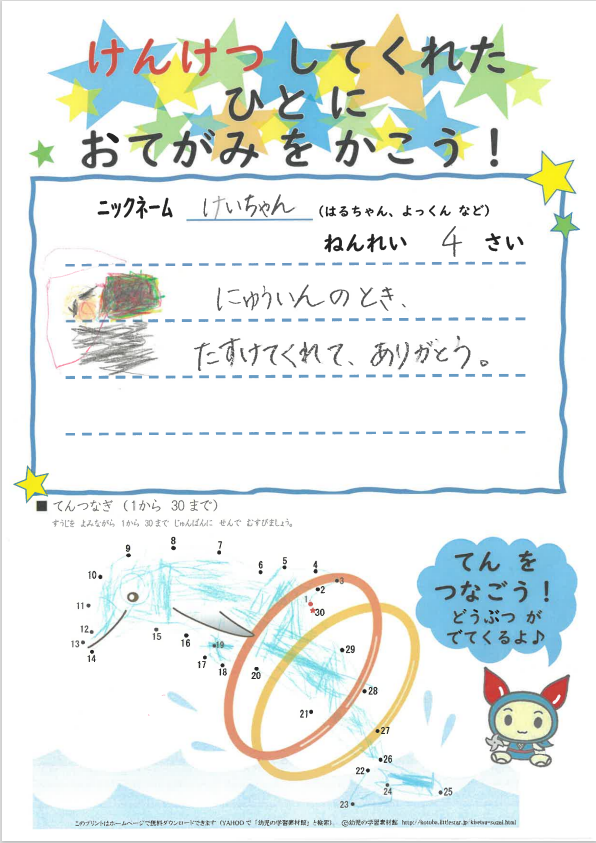 けんけつ してくれた
ひと に
おてがみ を かこう！
ニックネーム けいちゃん （はるちゃん、よっくん など）
ねんれい 4 さい
にゅういんのとき、
たすけてくれて、ありがとう。
■ てんつなぎ（１から 30まで）
すうじを よみながら 1から 30まで じゅんばんに せんで むすびましょう。
てん を
つなごう！
どうぶつ が
でてくるよ♪
9
8
7
6
5
4
3
2
1
30
10
11
12
13
14
15
16
17
18
19
20
29
28
21
27
26
22
24
25
23
このプリントはホームページで無料ダウンロードできます（YAHOOで「幼児の学習素材館」と検索）． ©幼児の学習素材館